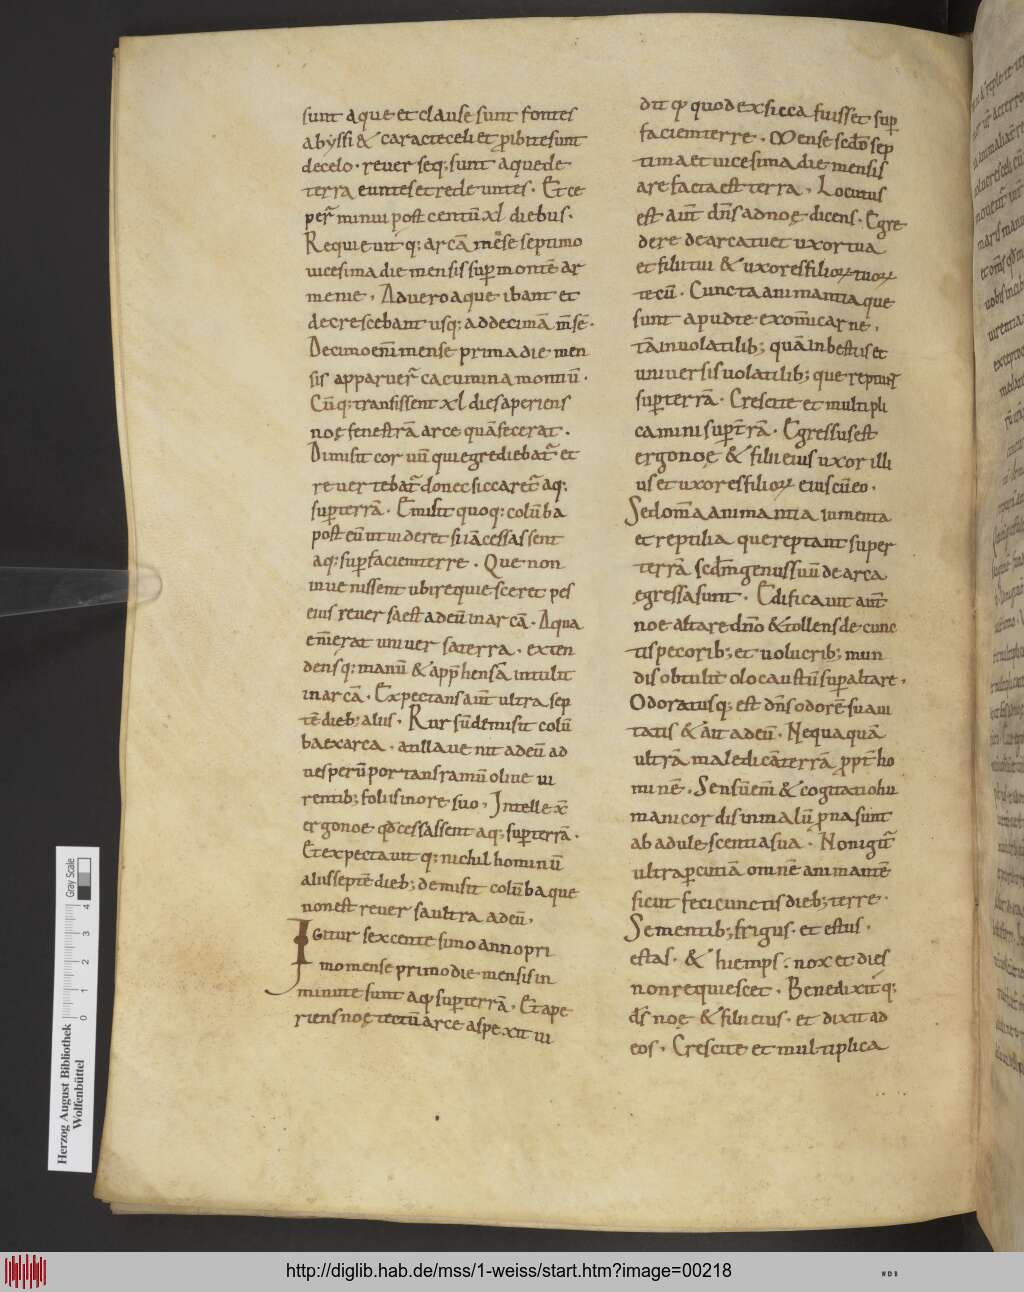 sunt aque et clause sunt fontes
abyssi & caractecelí et ꝓibite sunt
de celo · reuer seq; sunt aque de
terra euntes et redeuntes · Et ce
per̄ minui post centū xl diebus ·
Requieuit q; arcā mēse septimo
uicesima die mensis suꝑ montē ar
menie, Aduero aque ibant et
decrescebant usq; addecimā m̄sē ·
Decimo eni mense prima die men
sis apparuer̄ cacumina montiū ·
Cūq; transissent xl dies aperiens
noę fenestrā arce quā fecerat ·
Dimisit coruū qui egrediebat̄ et
reuertebat̄ donec siccaret̄ aq;
suꝑ terrā · Emisit quoq; colūba
post eū ut uideret si iā cessassent
aq; suꝑ faciem terre · Que non
inuenissent ubi requiesceret pes
eius reuersa est ad eū in arcā · Aqua
em̄ erat uniuersa terra · exten
densq; manū & app̄hensā intulit
in arcā · Expectans aūt ultra sep
tē dieb; aliis · Rursū demisit colū
ba ex arca · at illa uenit ad eū ad
uesperū portans ramū oliue ui
rentib; foliis in ore suo, Intellex̄
ergo noe qd̄ cessassent aq; suꝑ terrā ·
Et expectauit q; nichil hominū
aliis septē dieb; demisit colūba que
non est reuersa ultra ad eū,
Igitur sexcentesimo anno pri
mo mense primo die mensis in
minute sunt aq̄ suꝑ terrā · Et ape
riens noę tectū arce aspexit ui
dit ꝙ quod exsicca fuisset suꝑ
faciem terre · Mense scd̄o sep
tima et uicesima die mensis
arefacta est terra, Locutus
est aūt dn̄s ad noę dicens · Egre
dere de arca tu et uxor tua
et filii tui & uxores filioꝝ tuoꝝ
tecū · Cuncta animantia que
sunt apud te ex om̄i carne,
tā in uolatilib; quā in bestiis et
uniuersis uolatilib; que reptant̄
suꝑ terrā · Crescite et multipli
camini suꝑ t̄rā · Egressus est
ergo noę & filii eius uxor illi
us et uxores filioꝝ eius cū eo ·
Sed om̄a animantia iumenta
et reptilia que reptant super
terrā scd̄m genus suū de arca
egressa sunt · Edificauit aūt
noe altare dn̄o & tollens de cunc
tis pecorib; et uolucrib; mun
dis obtulit olocaustū suꝑ altare,
Odoratusq; est dn̄s odorē suaui
tatis & ait ad eū · Nequaquā
ultrā maledicā terrā ꝓpt̄ ho
minē, Sensū em̄ & cogitatio hu
mani cordis in malū ꝓna sunt
ab adulescentia sua · Non igit̄
ultra ꝑcutiā omnē animantē
sicut feci cunctis dieb; terre ·
Sementib; frigus · et estus,
estas · & hiemps : nox et dies
non requiescet · Benedixit q;
ds̄ noę & filii eius · et dixit ad
eos, Crescite et multiplica
Herzog August Bibliothek
Wolfenbüttel
0 1 2 3 4
Gray Scale
http://diglib.hab.de/mss/1-weiss/start.htm?image=00218